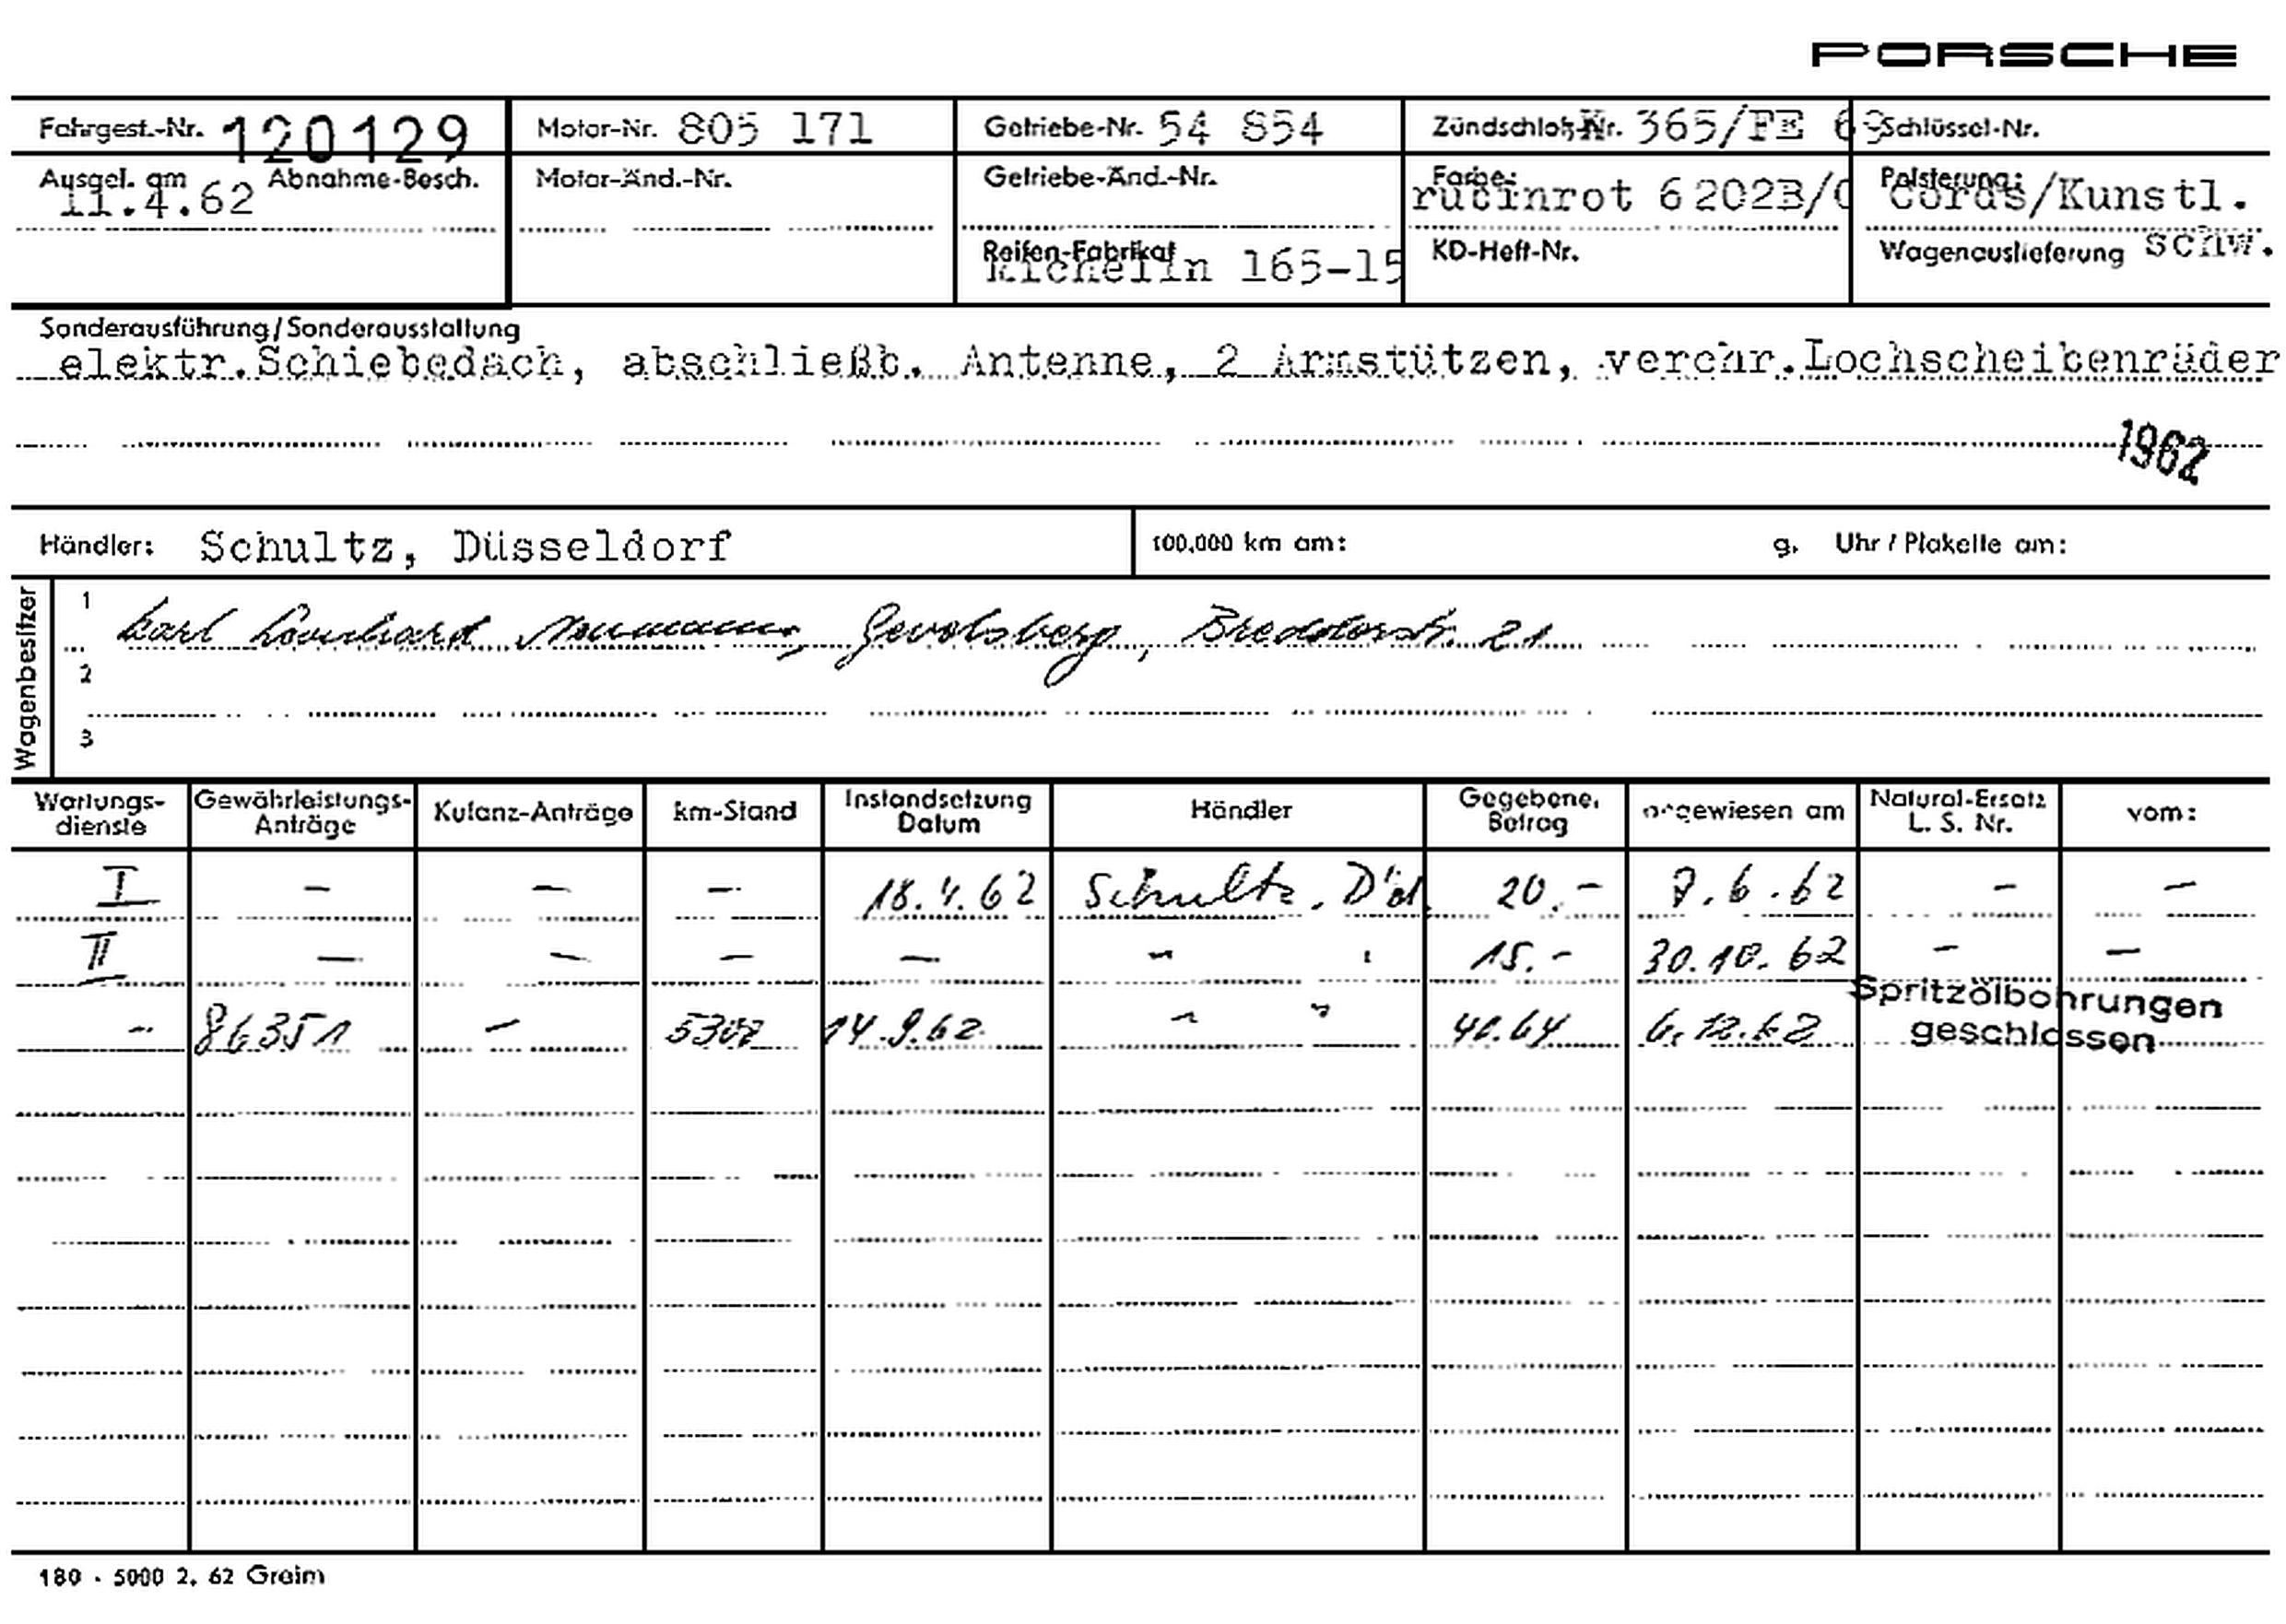 PORSCHE
Fahrgest.-Nr. 120129 Motor-Nr. 805 171 Getriebe-Nr. 54 854 Zündschloß-Nr. 365/FE 69 Schlüssel-Nr.
Ausgel. am 11.4.62 Abnahme-Besch. Motor-Änd.-Nr. Getriebe-Änd.-Nr. Farbe: rubinrot 6202B/ Polsterung: Cords/Kunstl.
Reifen-Fabrikat Michelin 165-15 KD-Heft-Nr. Wagenauslieferung schw.
Sonderausführung/Sonderausstattung
elektr.Schiebedach, abschließb. Antenne, 2 Armstützen, verchr.Lochscheibenräder
1962
Händler: Schultz, Düsseldorf 100,000 km am: g. Uhr / Plakette am:
Wagenbesitzer
1 Karl Neumann, Gevelsberg, 21
2
3
Wartungs-dienste Gewährleistungs-Anträge Kulanz-Anträge km-Stand Instandsetzung Datum Händler Gegebener Betrag angewiesen am Natural-Ersatz L. S. Nr. vom:
I - - - 18.4.62 Schultz, D'd. 20.- 7.6.62 - -
II - - - - " " 15.- 30.10.62 - -
- 86351 - 14.9.62 " " 41.64 6.12.62
Spritzölbohrungen
geschlossen
180 - 5000 2. 62 Greim